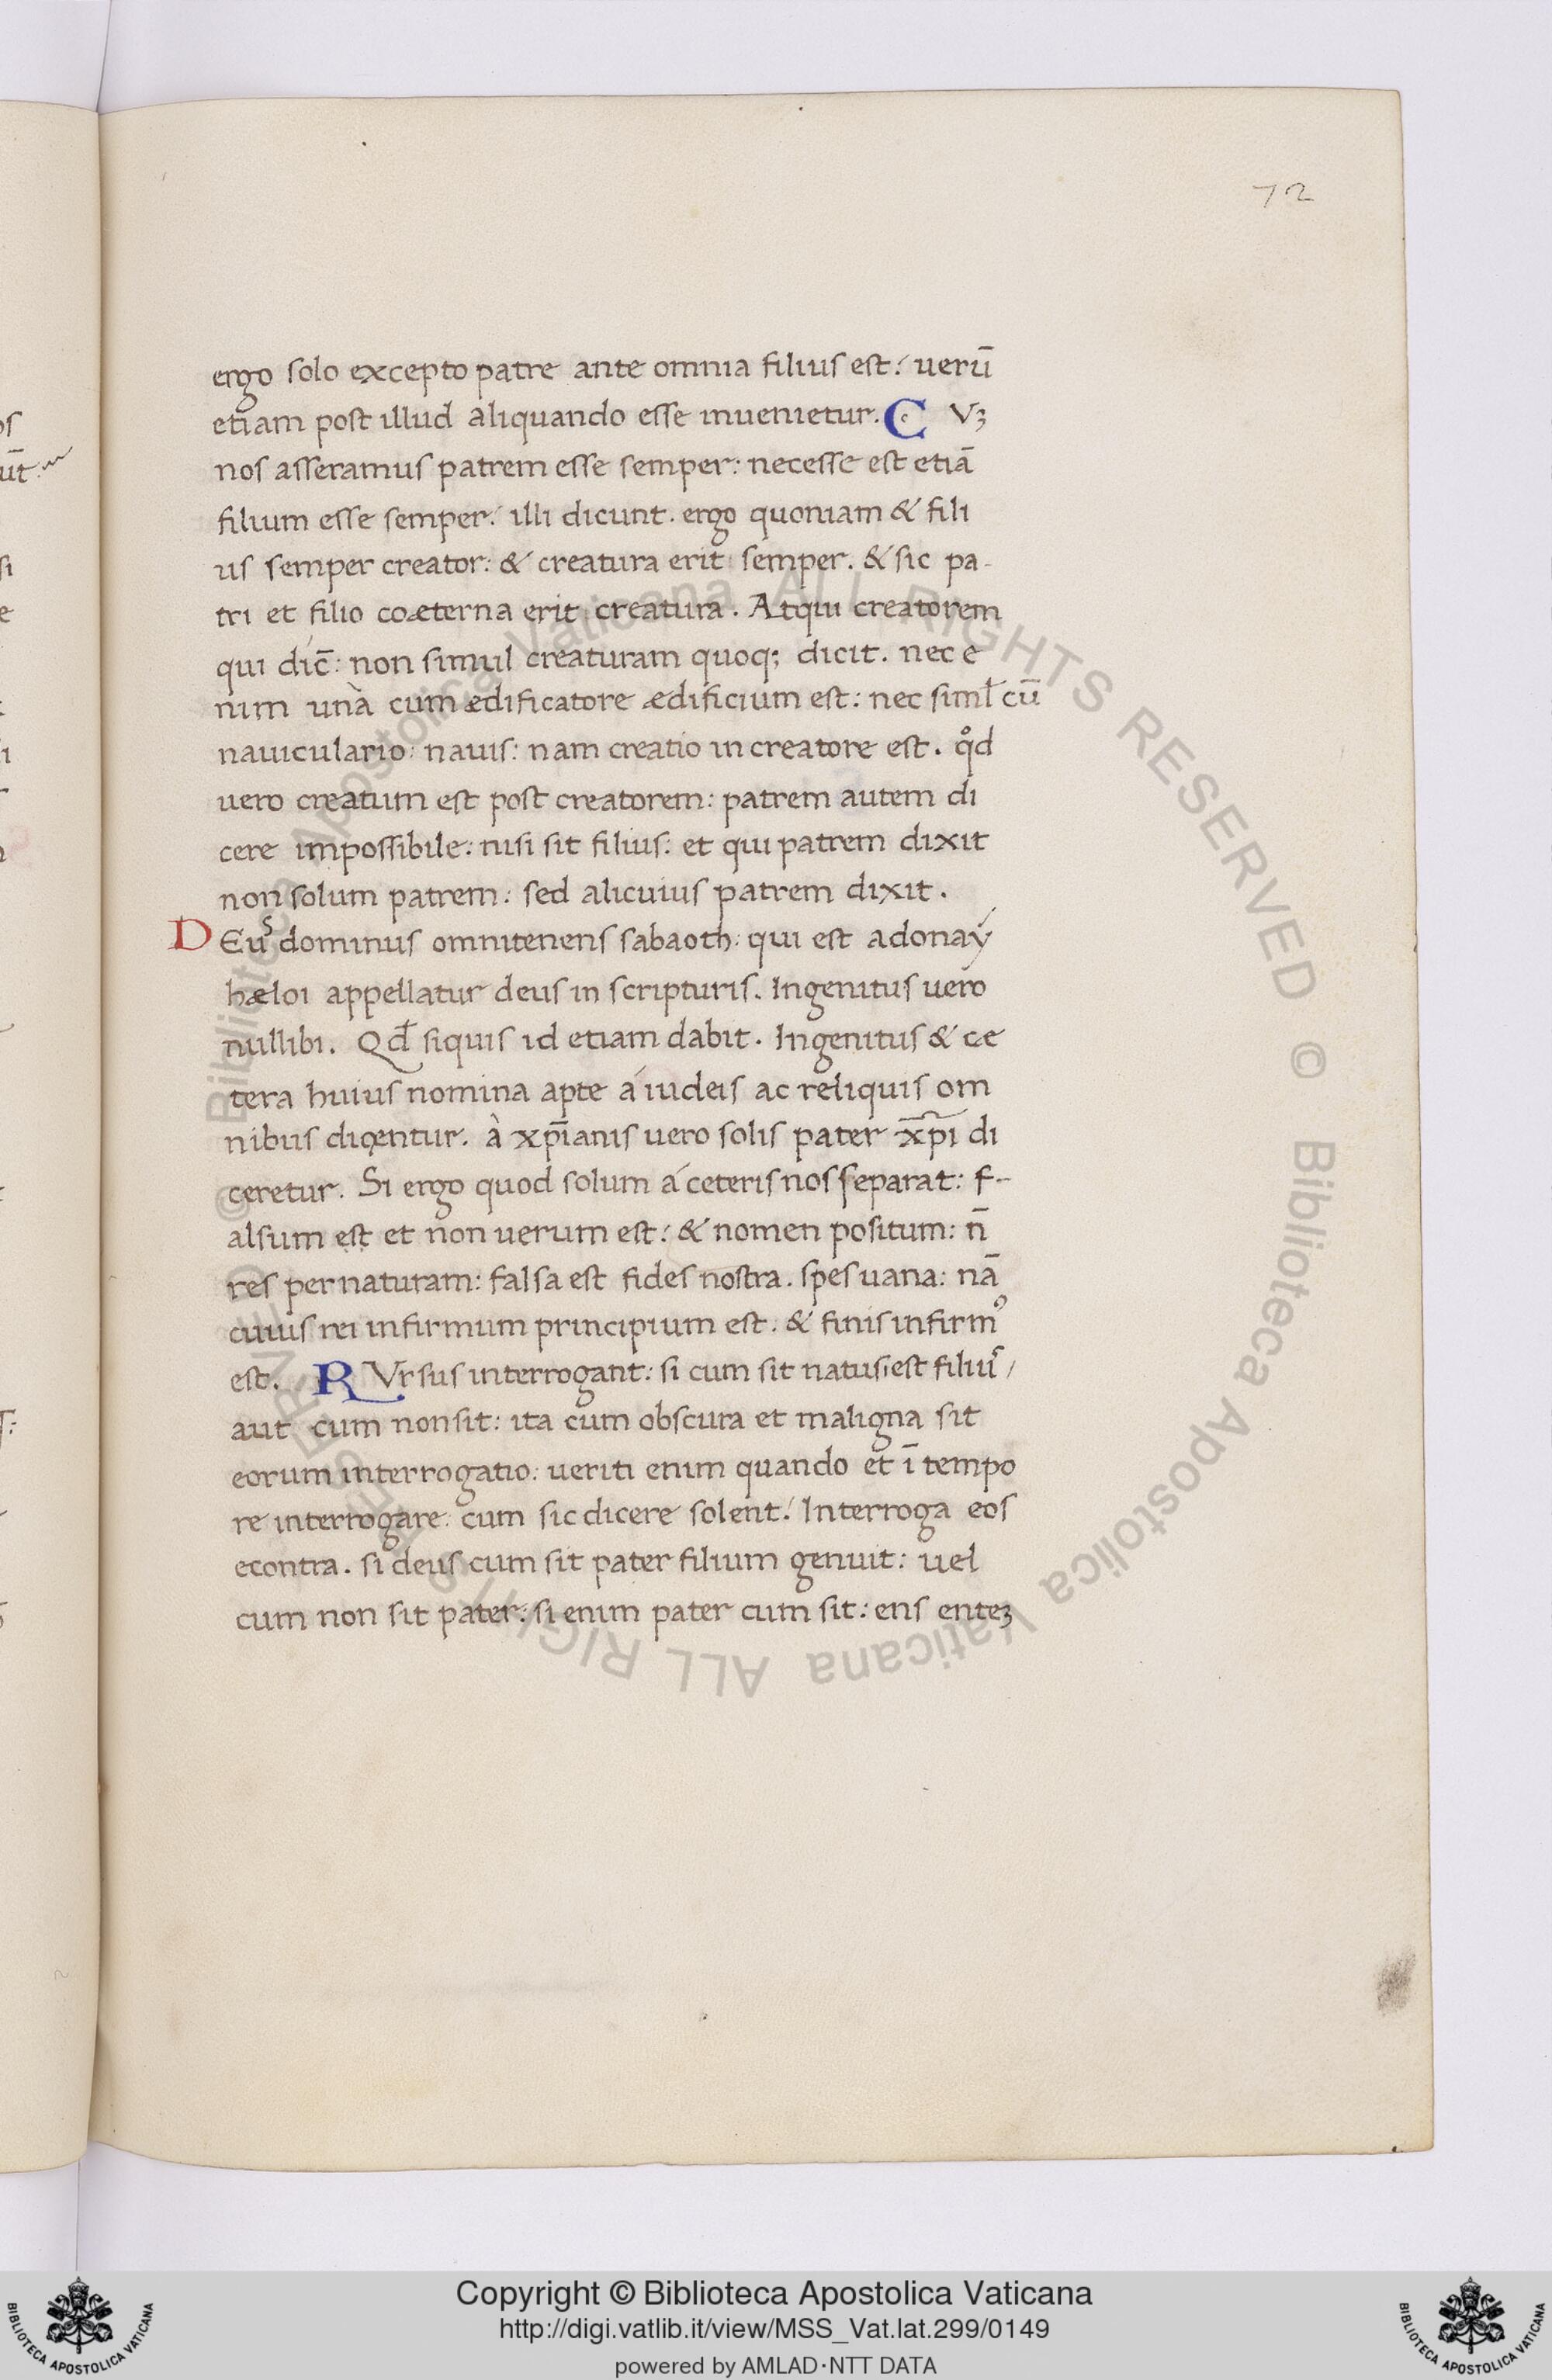 72
ergo solo excepto patre ante omnia filius est: uerū
etiam post illud aliquando esse inuenietur. C Vʒ
nos asseramus patrem esse semper: necesse est etiā
filium esse semper: illi dicunt. ergo quoniam & fili
us semper creator: & creatura erit semper. & sic pa-
tri et filio coæterna erit creatura. Atqui creatorem
qui dic̄: non simul creaturam quoq; dicit. nec e
nim unà cum ædificatore ædificium est: nec siml̄ cū
nauiculario: nauis: nam creatio in creatore est. qd̊
uero creatum est post creatorem: patrem autem di
cere impossibile: nisi sit filius: et qui patrem dixit
non solum patrem: sed alicuius patrem dixit.
D Eus dominus omnitenens sabaoth: qui est adonaý
hæloi appellatur deus in scripturis. Ingenitus uero
nullibi. Qd̄ siquis id etiam dabit. Ingenitus & ce
tera huius nomina apte á iudeis ac reliquis om
nibus dicentur. à xp̄ianis uero solis pater x̄pi di
ceretur. Si ergo quod solum á ceteris nos separat: f-
alsum est et non uerum est: & nomen positum: n̄
res per naturam: falsa est fides nostra. spes uana: nā
cuius rei infirmum principium est. & finis infirmꝰ
est. R Vrsus interrogant: si cum sit natus est filius/
aut cum non sit: ita cum obscura et maligna sit
eorum interrogatio: ueriti enim quando et ī tempo
re interrogare: cum sic dicere solent: Interroga eos
econtra. si deus cum sit pater filium genuit: uel
cum non sit pater: si enim pater cum sit: ens enteʒ
© Biblioteca Apostolica Vaticana ALL RIGHTS RESERVED © Biblioteca Apostolica Vaticana ALL RIGHTS RESERVED
BIBLIOTECA APOSTOLICA VATICANA
Copyright © Biblioteca Apostolica Vaticana
http://digi.vatlib.it/view/MSS_Vat.lat.299/0149
powered by AMLAD·NTT DATA
BIBLIOTECA APOSTOLICA VATICANA